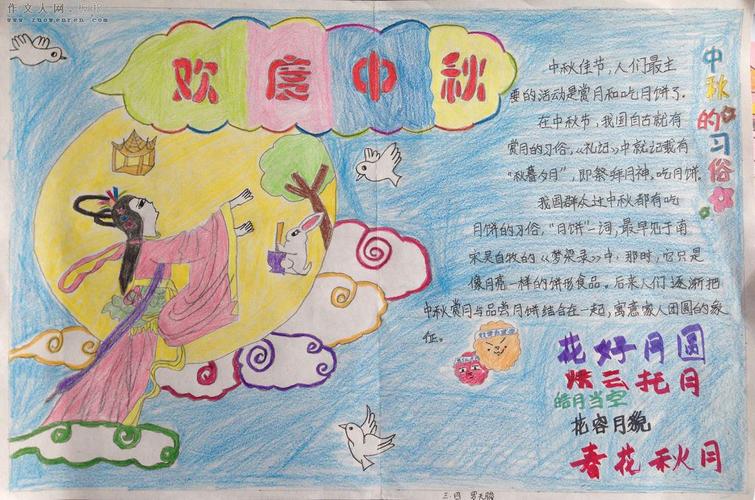 作文人网·版权
www.zuowenren.com
欢度中秋
中秋的习俗
中秋佳节，人们最主
要的活动是赏月和吃月饼了。
在中秋节，我国自古就有
赏月的习俗，《礼记》中就记载有
“秋暮夕月”，即祭拜月神，吃月饼。
我国群众过中秋都有吃
月饼的习俗，“月饼”一词，最早见于南
宋吴自牧的《梦梁录》中，那时，它只是
像月亮一样的饼形食品。后来人们逐渐把
中秋赏月与品尝月饼结合在一起，寓意家人团圆的象
征。
花好月圆
烘云托月
皓月当空
花容月貌
春花秋月
三·四